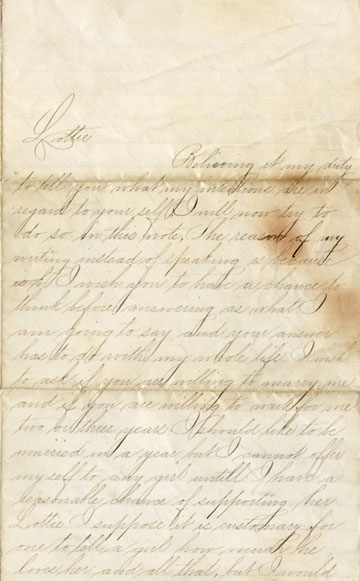 Lottie
Believing it my duty
to tell you what my intentions are in
regard to your self I will now try to
do so in this note, The reason of my
writing instead of speaking is because
I wish you to have a chance to
think before answering as what I
am going to say and your answer
has to do with my whole life. I wish
to ask if you are willing to marry me
and if you are willing to wait for me
two or three years I should like to be
married in a year but I cannot offer
my self to any girl untill I have a
reasonable chance of supporting her
Lottie I suppose it is customary for
one to tell a girl how much he
loves her and all that, but I would